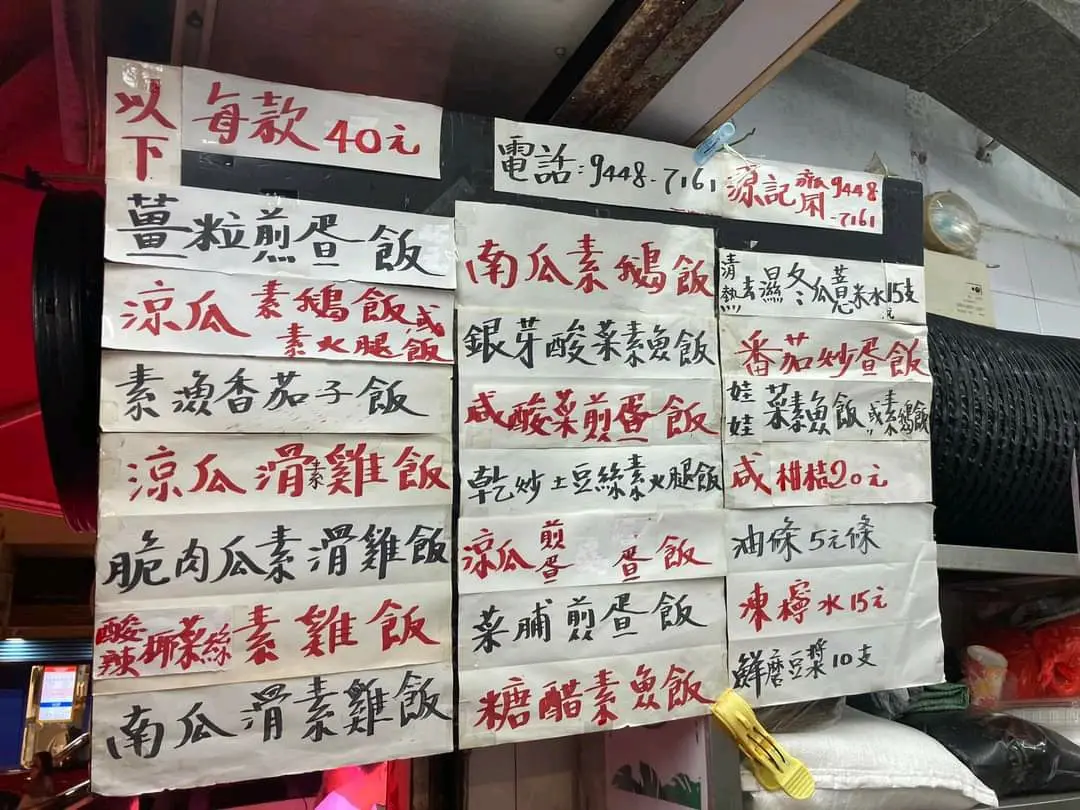 以下
每款 40元
電話:9448-7161
源記 齋 9448-7161
薑粒煎蛋飯
涼瓜素鵝飯或素火腿飯
素漁香茄子飯
涼瓜滑素雞飯
脆肉瓜素滑雞飯
酸辣椰菜絲素雞飯
南瓜滑素雞飯
南瓜素鵝飯
銀芽酸菜素魚飯
咸酸菜煎蛋飯
乾炒土豆絲素火腿飯
涼瓜煎蛋 蛋飯
菜脯煎蛋飯
糖醋素魚飯
清熱去濕冬瓜薏米水15支
番茄炒蛋飯
娃娃菜素魚飯或素鵝飯
咸柑桔20元
油條5元條
凍檸水15元
鮮磨豆漿10支